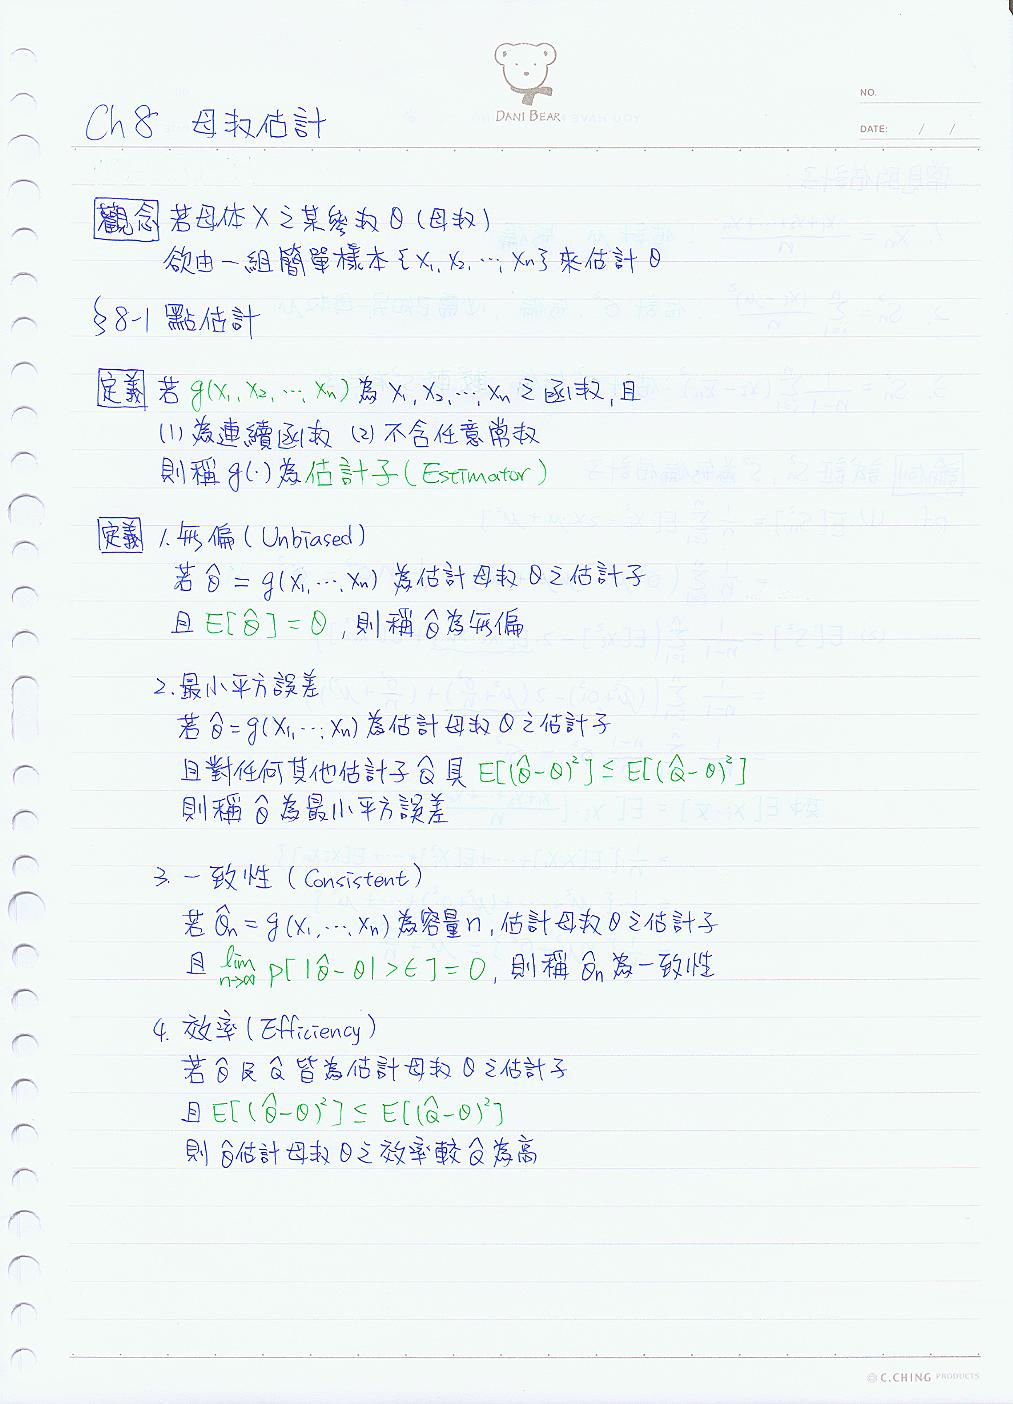 DANI BEAR
NO.
DATE: / /
Ch8 母数估計
觀念 若母体X之某參数θ(母数)
欲由一組簡單樣本{X₁, X₂, …, Xn}來估計θ
§8-1 點估計
定義 若g(X₁, X₂, …, Xn)為X₁, X₂, …, Xn之函数,且
(1)為連續函数 (2)不含任意常数
則稱g(·)為估計子(Estimator)
定義 1.無偏(Unbiased)
若θ̂=g(X₁, …, Xn)為估計母数θ之估計子
且E[θ̂]=θ,則稱θ̂為無偏
2.最小平方誤差
若θ̂=g(X₁, …, Xn)為估計母数θ之估計子
且對任何其他估計子Q̂具E[(θ̂-θ)²]≤E[(Q̂-θ)²]
則稱θ̂為最小平方誤差
3.一致性(Consistent)
若θ̂n=g(X₁, …, Xn)為容量n,估計母数θ之估計子
且 lim n→∞ P[|θ̂-θ|>ϵ]=0,則稱θ̂n為一致性
4.效率(Efficiency)
若θ̂及Q̂皆為估計母数θ之估計子
且E[(θ̂-θ)²]≤E[(Q̂-θ)²]
則θ̂估計母数θ之效率較Q̂為高
C.CHING PRODUCTS